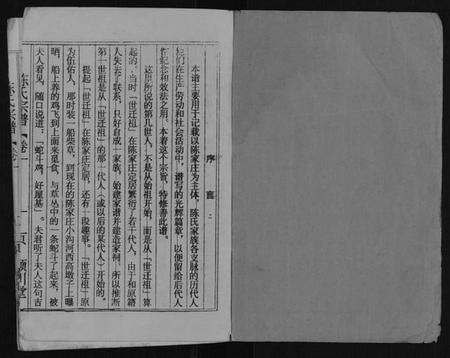 序言：
本谱主要用于记载以陈家庄为主体，陈氏家族各支脉的历代人
物们在生产劳动和社会活动中，谱写的光辉篇章，以便留给后代人
作纪念和效法之用。本着这个宗旨，特修善此谱。
这里所说的第几世人，不是从始祖开始，而是从「世迁祖」算
起的。当时「世迁祖」在陈家庄定居繁衍了若干代人，由于和原籍
人失去了联系，只好自成一家族，始建家谱并建造家祠，所以推断
第一世祖是从「世迁祖」的那一代人（或以后的某代人）开始的。
提起「世迁祖」在陈家庄定居，还有一段趣事。「世迁祖」原
为伍佑人，那时装一船柴草，到现在的陈家庄小沟河西高墩子上曝
晒，船上养的鸡飞到上面来觅食，与草丛中的一条蛇斗了起来，被
夫人看见，随口说道：「蛇斗鸡，好屋基」。夫君听了夫人这句吉
陈氏宗谱「卷一
一页
颍川堂